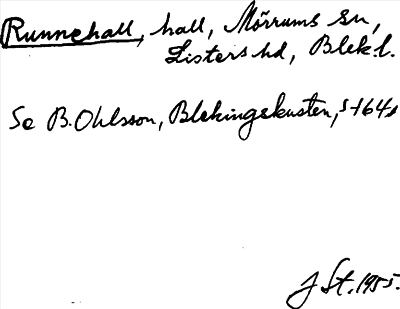 Runnehall, hall, Mörrums sn,
Listers hd, Blek.l.
Se B. Ohlsson, Blekingekusten, s 164
J St. 1955.